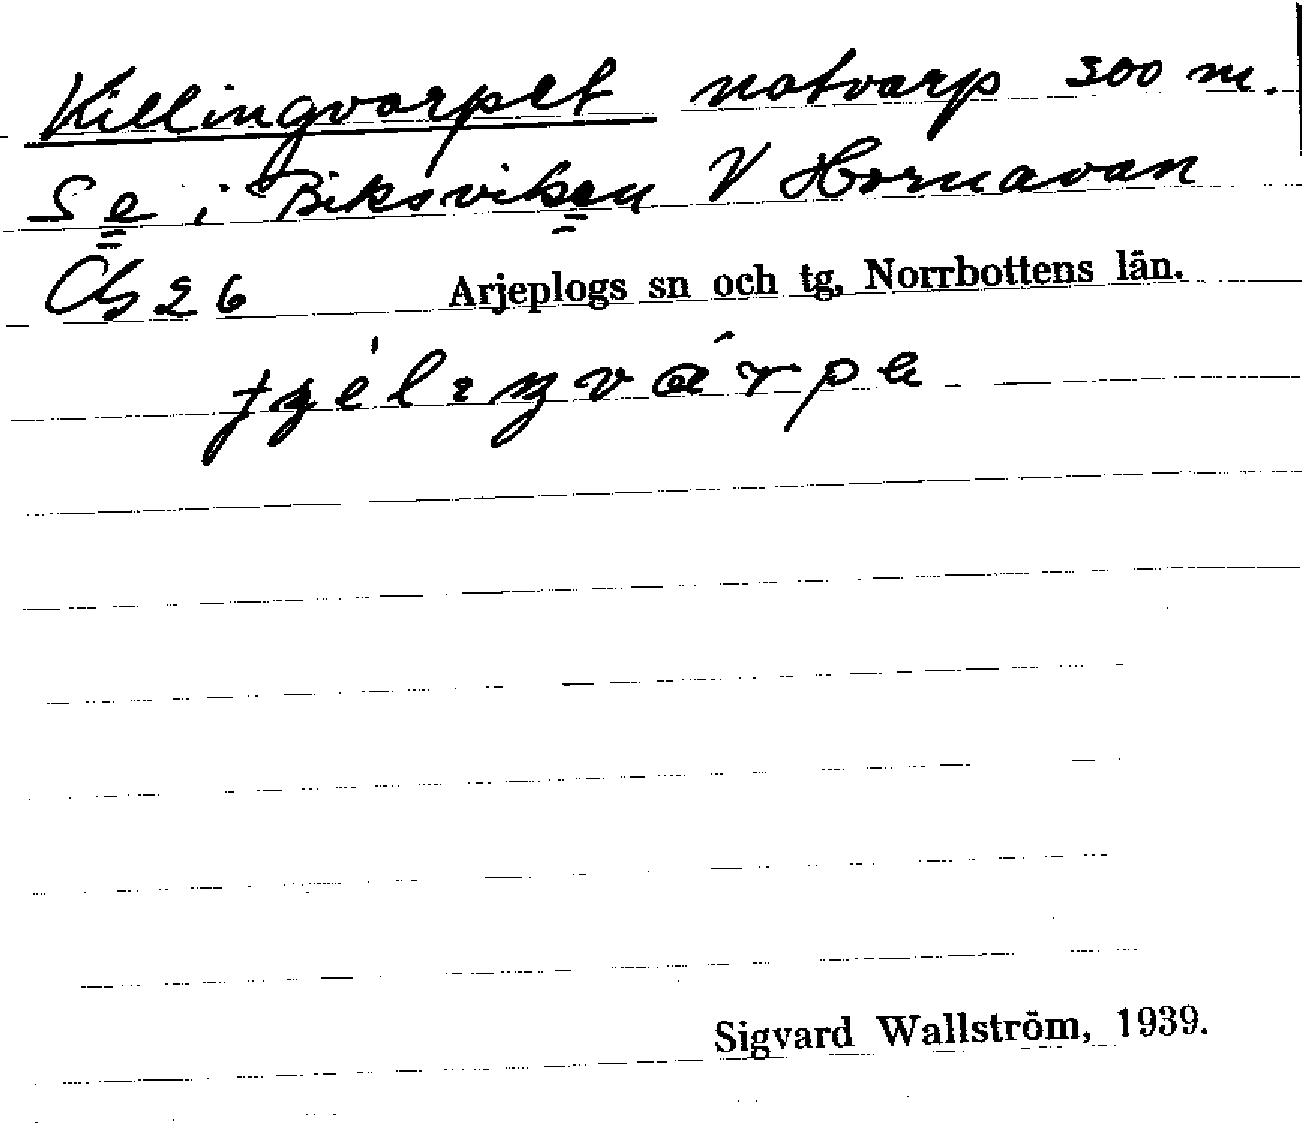 Killingvarpet notvarp 300 m.
Se i Biksviken V Hornavan
Cb 26 Arjeplogs sn och tg, Norrbottens län.
Sigvard Wallström, 1939.